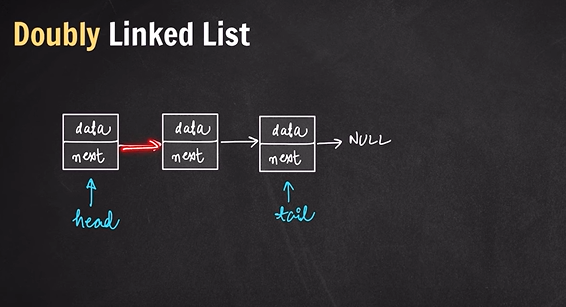 Doubly Linked List
data
next
data
next
data
next
NULL
head
tail